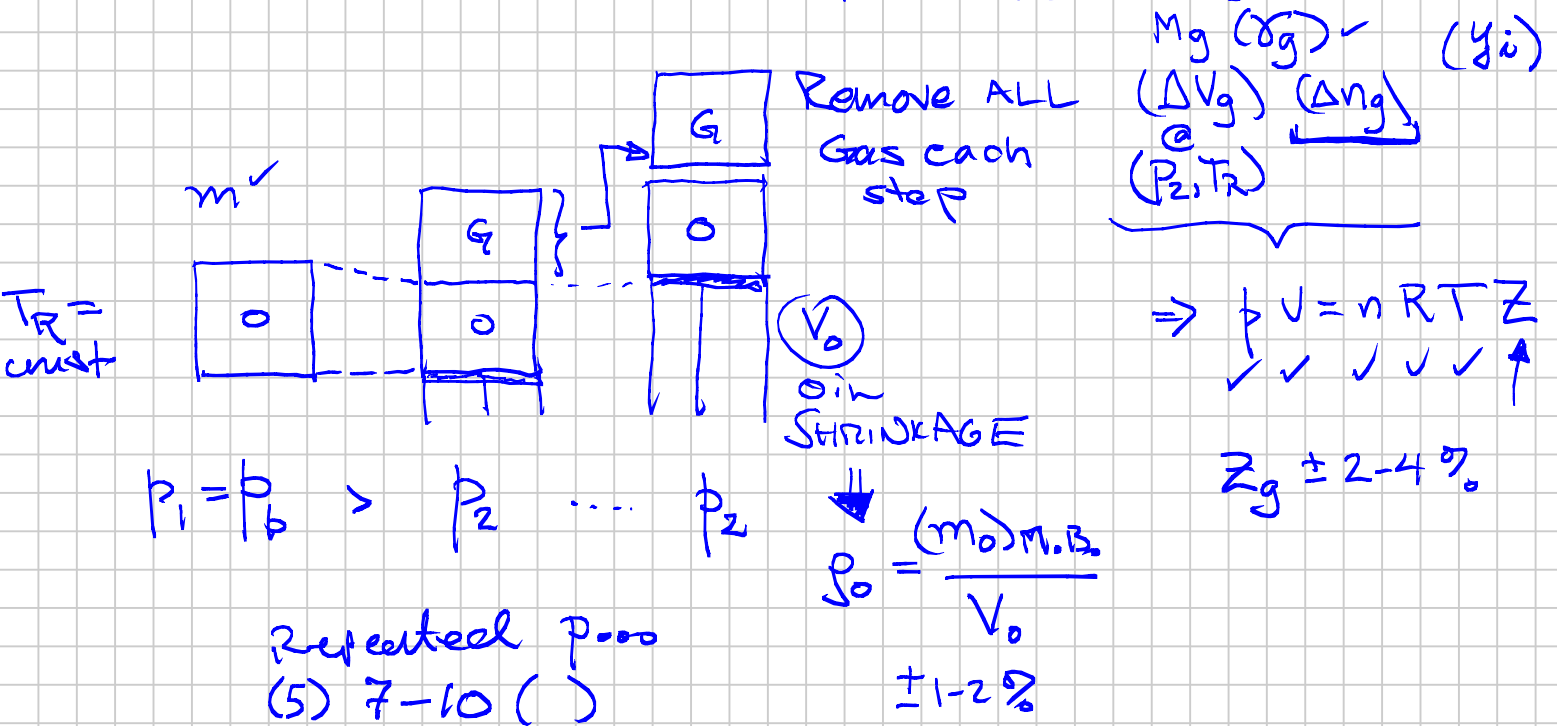 Mg (γg) ✓ (yi)
G Remove ALL (ΔVg) (Δng)
Gas each @
step (P2, TR)
m ✓
G O
TR = const
O O
Vo
Oil
SHRINKAGE
⇒ pV = nRTZ
✓ ✓ ✓ ✓ ✓ ↑
Zg ± 2-4 %
p1 = pb > p2 .... p2
ρo = (mo)M.B. / Vo
± 1-2 %
Repeated p...
(5) 7-10 ( )